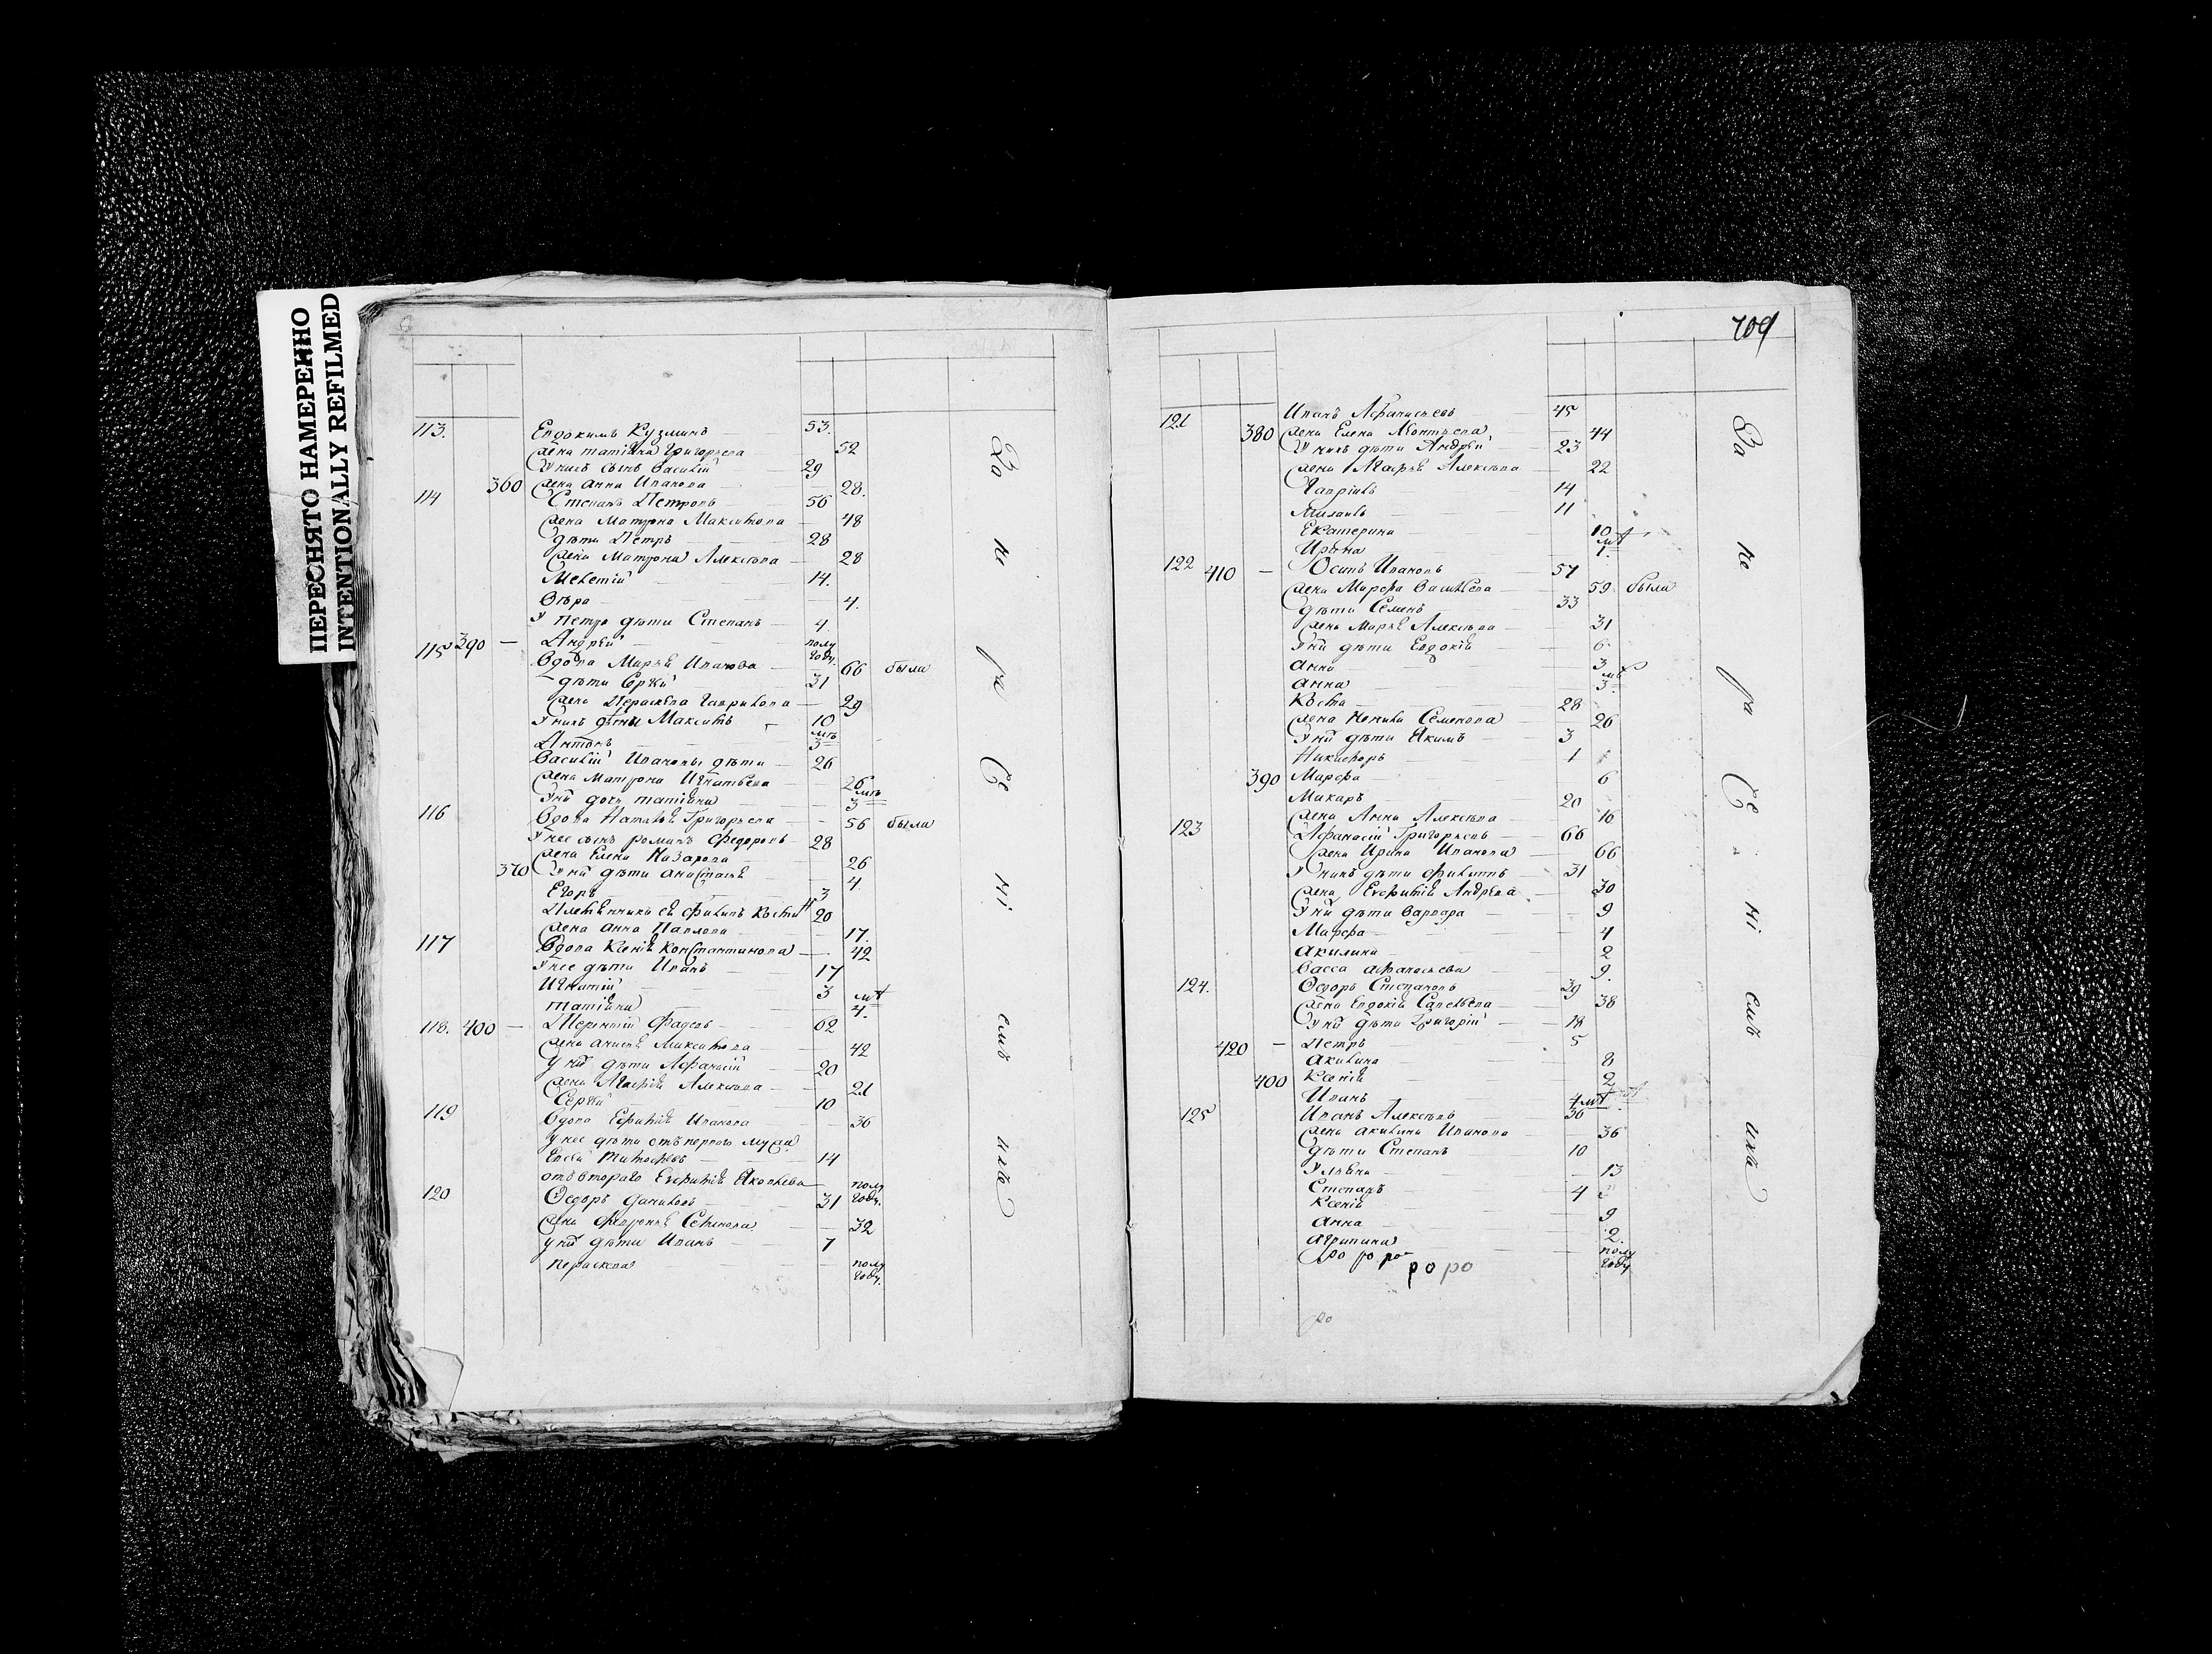 ПЕРЕСНЯТО НАМЕРЕННО
INTENTIONALLY REFILMED
113. Евдокимъ Кузминъ 53.
жена татіяна Григорьева 52
У нихъ сынъ Василій 29
360 жена анна Иванова 28.
114 Степанъ Петровъ 56
жена Матрона Максимова 48
дѣти Петръ 28
жена Матрона Алексѣева 28
Мелетій 14.
Вѣра 4.
У петра дѣти Степанъ 4.
390 Андрей полугоду.
115 Вдова Марья Иванова 66 была
дѣти Сргѣй 31
жена Парасковья Гаврилова 29
У нихъ дѣти Максимъ 10
Антонъ 3 мѣ
Василій Ивановы дѣти 26
жена Матрона Игнатьева 26
У ній дочь татіяна 3 мѣ
116 Вдова Наталья Григорьева 56 была
У нее сынъ романъ Федоровъ 28
жена Елена Назарова 26
370 У ній дѣти анастасья 4
Егоръ 3
Племянникъ ея Филипъ 20
жена анна Павлова 17.
117 Вдова Ксенія Константинова 42
У нее дѣти Иванъ 17
Игнатій 3
татіяна 4. мѣ
118. 400 Терентій Фадеевъ 62
жена анисья Максимова 42
У ній дѣти Афанасій 20
жена Агафія Алексѣева 21
Сергѣй 10
119 Вдова Ефимія Иванова 36
У нее дѣти отъ перваго мужа
Тимофеевъ 14
отъ втораго Ефимія Яковлева полугоду.
120 Федоръ Даниловъ 31
жена Февронья Семенова 32
У ній дѣти Иванъ 7
параскева полугоду.
709
121 Иванъ Афанасьевъ 45
380 жена Елена Леонтьева 44
У нихъ дѣти Андрей 23
жена Марья Алексѣева 22
Гавріилъ 14
Михаилъ 11
Екатерина 10
Ирина 1. мѣ
122 410 Осипъ Ивановъ 57
жена Марфа Васильева 59 была
дѣти Семенъ 33
жена Марья Алексѣева 31
У ній дѣти Евдокія 6
анна 3
анна 3 мѣ
Коста 28
жена Семенова 26
У ній дѣти Якимъ 3
Никифоръ 1
390 Марфа 6
Макаръ 20
жена Анна Алексѣева 16
123 Афанасій Григорьевъ 66
жена Ирина Иванова 66
У нихъ дѣти Филиппъ 31
жена Евфимія Андрѣева 30
У ній дѣти Варвара 9
Марфа 4
акилина 2
Васса афанасьева 9.
124. Федоръ Степановъ 39
жена Евдокія Савельева 38
У ній дѣти Григорій 18
420 Петръ 5
акилина 8
400 Ксенія 2
Иванъ 4 мѣ
125 Иванъ Алексѣевъ 36
жена акилина Иванова 36
дѣти Степанъ 10
Ульяна 13
Степанъ 4
Ксенія 9
анна 2.
агрипина полугоду.
ро ро ро
ро ро
ро